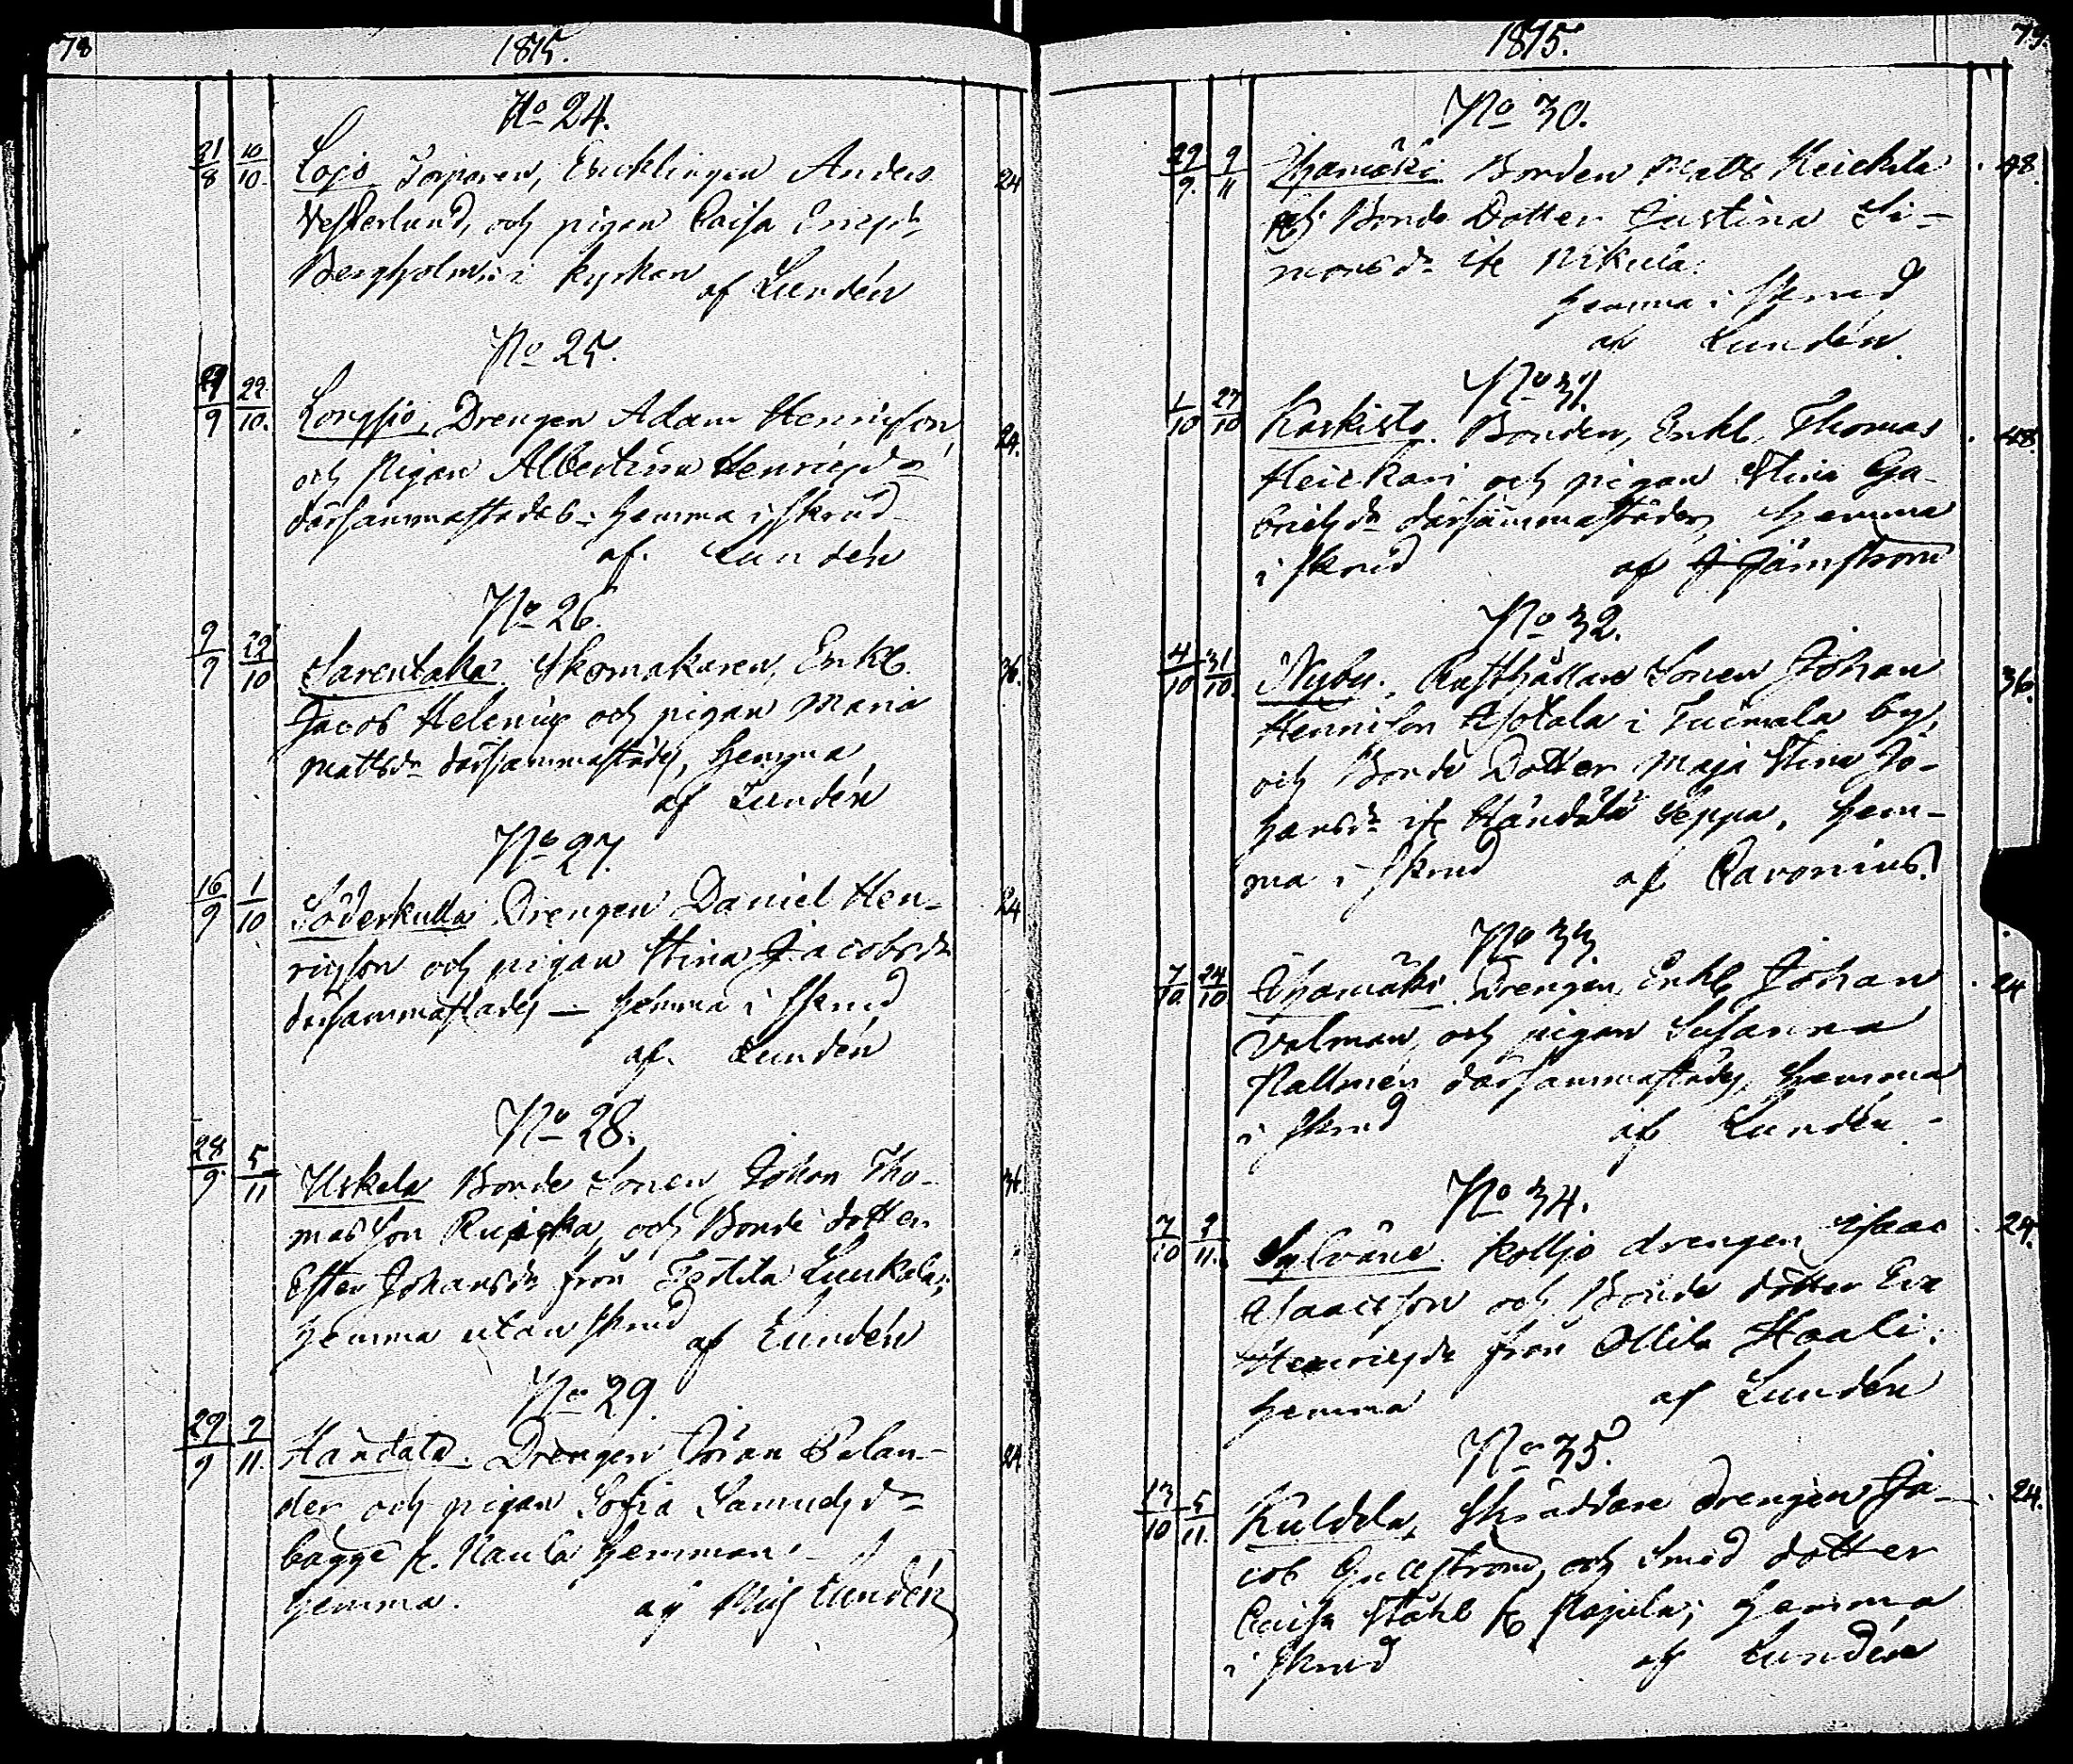 78
1815.
No 24.
21/8 10/10. Lojo Torparen, Enklingen Anders 24
Vesterlund, och pigan Caisa Ericsdr
Bergholm i kyrkan af Lundén
No 25.
/9 22/10. Longsjo, Drengen Adam Henricsson 24.
och Pigan Albertina Henricsdr
därsammastädes; hemma i skrud
af Lundén
No 26.
9/9 29/10 Sarentaka Skomakaren, Enkl. 36.
Jacob Helenius och pigan Maria
Mattsdr därsammastädes, hemma
af Lundén
No 27.
16/9 1/10 Söderkulla Drengen Daniel Hen- 24
ricsson och pigan Stina Jacobsdr
därsammastädes — hemma i skrud
af Lundén
No 28.
28/9 5/11 Uskela Bonde Sonen Johan Tho- 36.
masson och Bonde dotter
Ester Johansdr från Luukala;
hemma utan skrud af Lundén
No 29
29/9 9/11. Händälä. Drengen Göran Palan- 24
der och pigan Sofia Samuelsdr
bägge fr. Naula hemman.
hemma. af Lundén
1815.
79.
No 30.
29/9. 9/11 Bonden Matts Heickilä 48.
och Bonde Dotter Justina Si-
monsdr ifr Nikula.
hemma i skrud
af Lundén.
No 31.
1/10 27/10 Karkisto. Bonden, Enkl. Thomas 48.
Heickari och pigan Stina Ga-
brielsdr därsammastädes, hemma
i skrud af
No 32.
4/10 31/10. Nyby. Rusthållare Sonen Johan 36.
Henricson i by,
och Bonde Dotter Maja Stina Jo-
hansdr ifr Händälä Seppa, hem-
ma i skrud af Pavonius.
No 33.
7/10. 24/10 Drengen, Enkl. Johan 24
Valman, och pigan Susanna
därsammastädes, hemma
i skrud af Lundén
No 34.
7/10 2/11. Sylvänä drengen Isaac 24.
Isaacsson och Bonde dotter Eva
Henricsdr från Ollila Haali.
hemma af Lundén
No 35.
13/10 5/11. Kuldela, Skräddare drengen Ja- 24.
cob Gullström, och Smed dotter
Caisa Ståhl fr Pajula; hemma
i skrud af Lundén